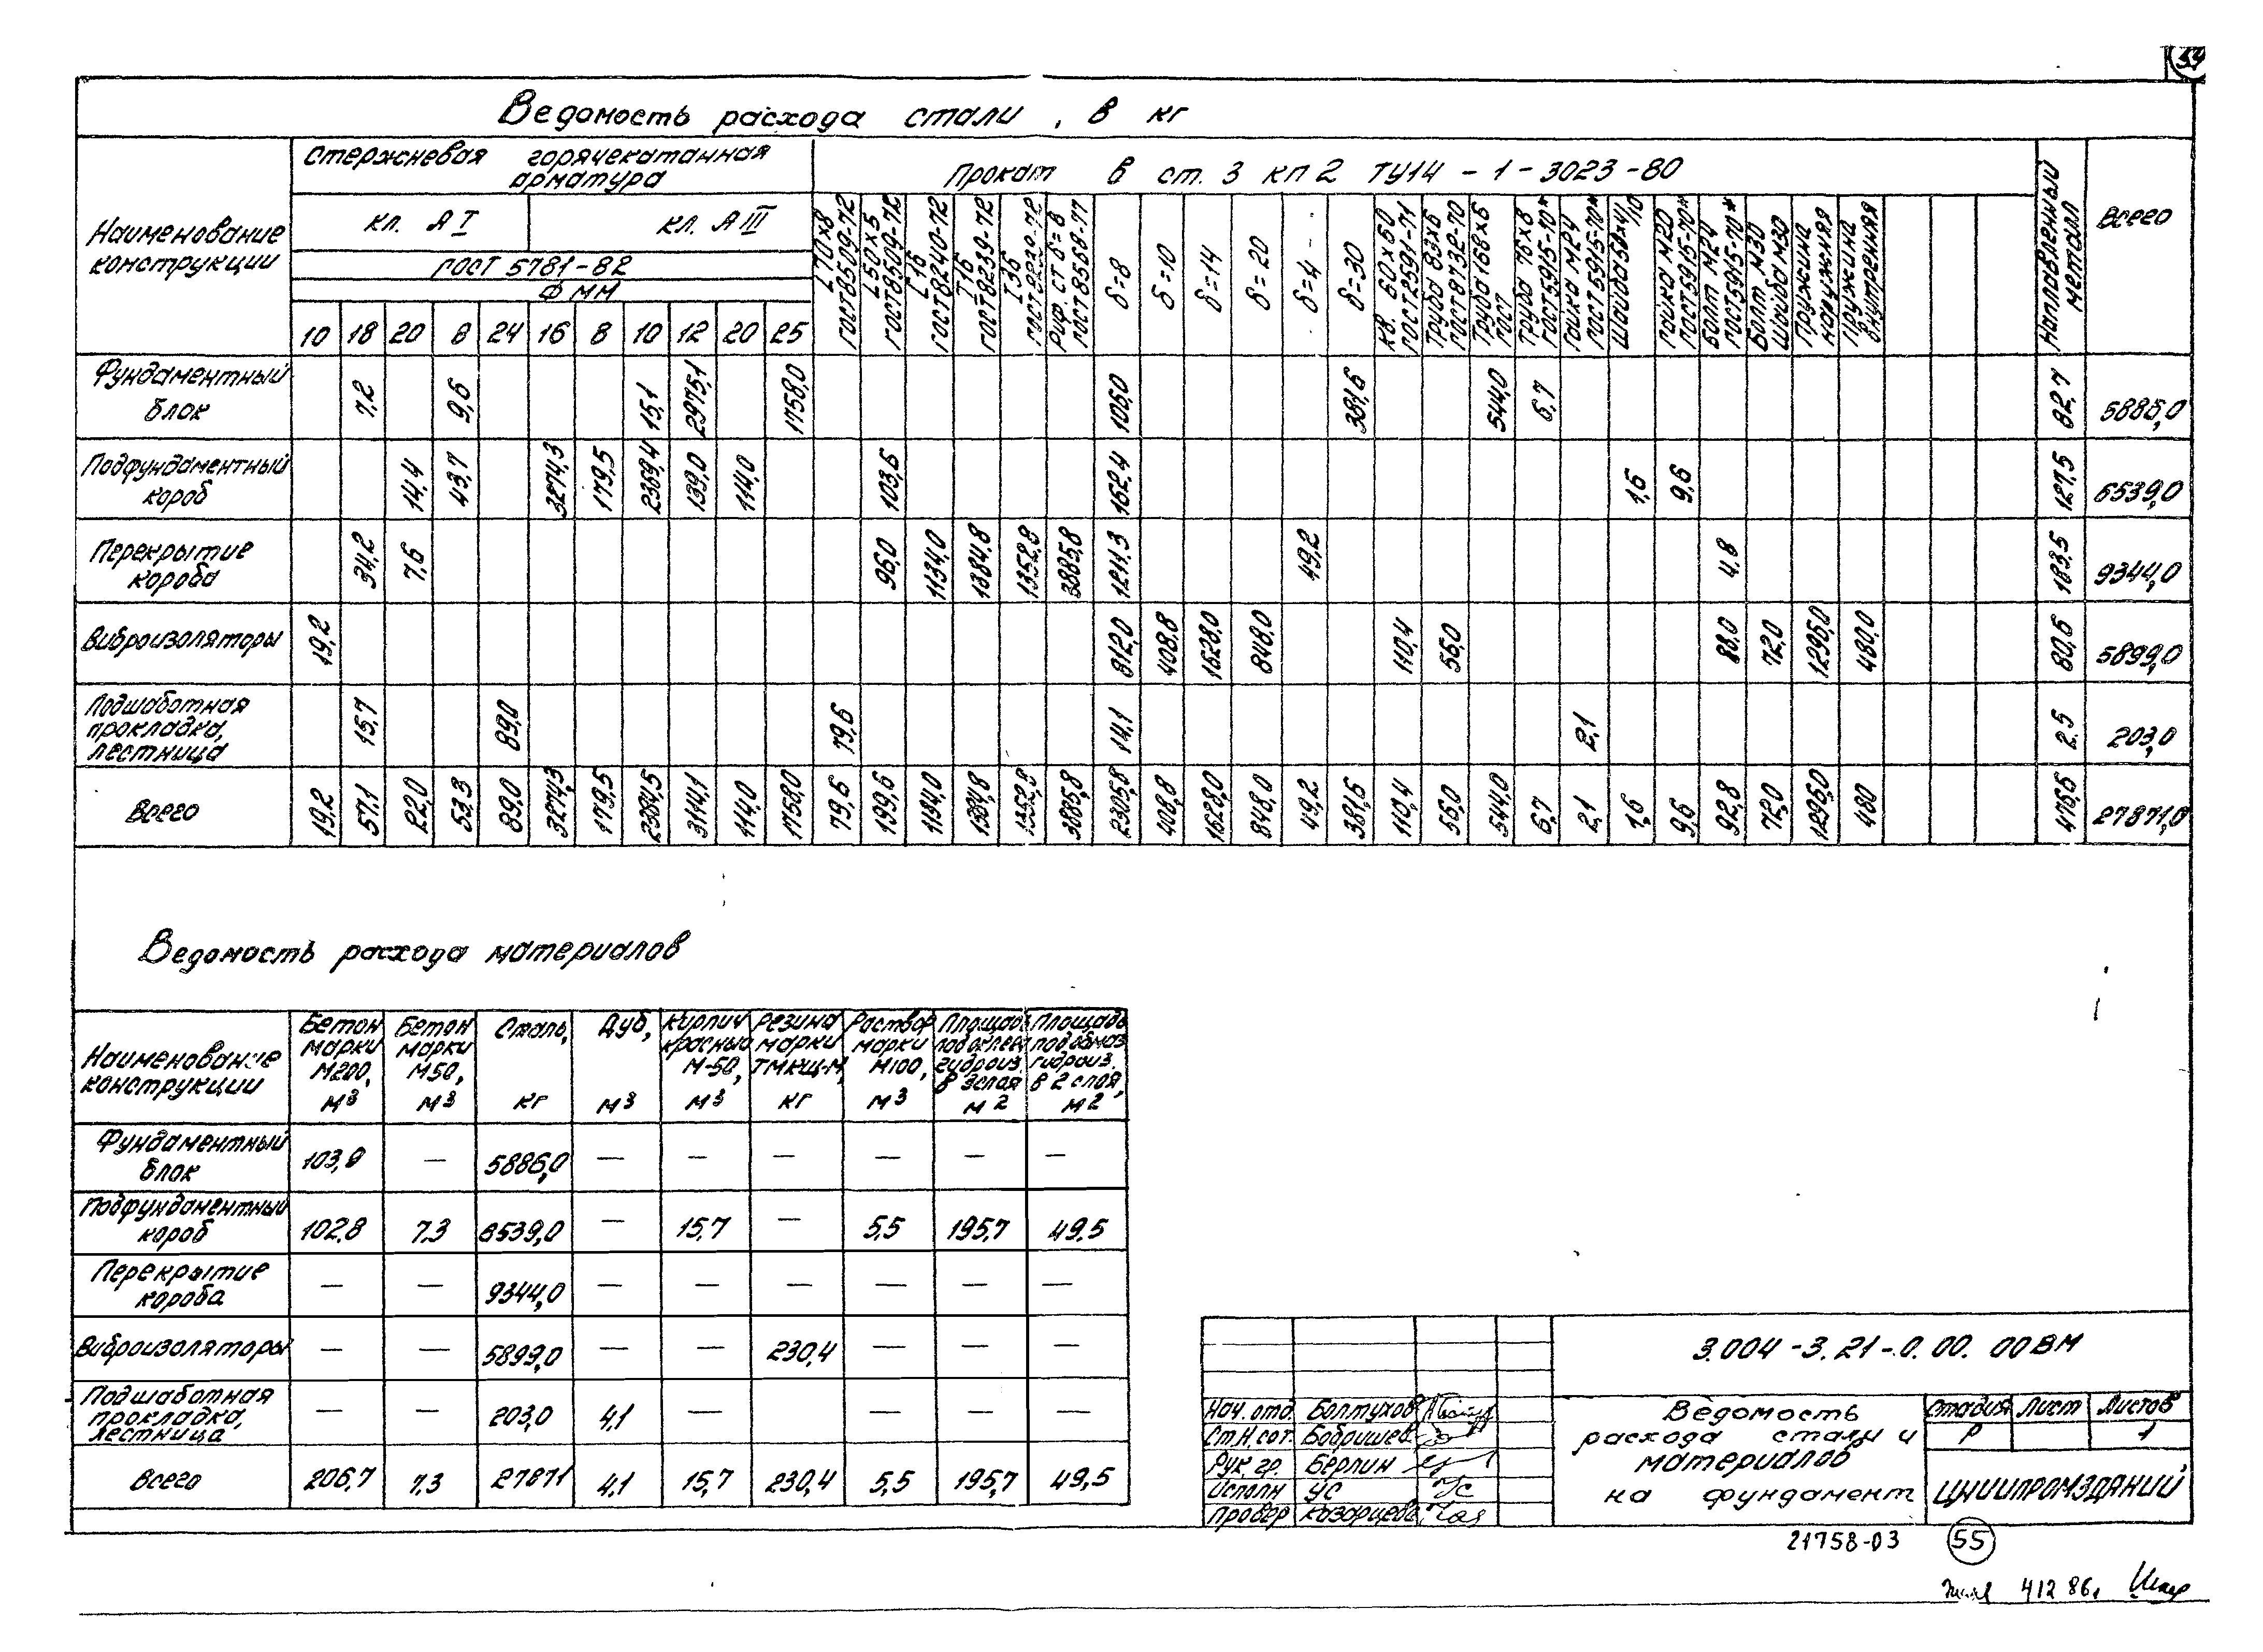 54
Ведомость расхода стали, в кг
Наименование конструкции
Стержневая горячекатанная арматура
Прокат В ст. 3 кп 2 ТУ14-1-3023-80
Наплавленный металл
Всего
кл. АI
кл. АIII
ГОСТ 5781-82
Ф мм
10 18 20 8 24 16 8 10 12 20 25
L 70×8 ГОСТ 8509-72
L 50×5 ГОСТ 8509-72
[ 16 ГОСТ 8240-72
I 16 ГОСТ 8239-72
I 36 ГОСТ 8239-72
Риф. ст δ=8 ГОСТ 8568-77
δ=8
δ=10
δ=14
δ=20
δ=4
δ=30
Кв. 60×60 ГОСТ 2591-71
Труба 83×6 ГОСТ 8732-70
Труба 168×6 ГОСТ
Труба 76×8 ГОСТ 5915-70*
Гайка М24 ГОСТ 5915-70*
Гайка М20 ГОСТ 5915-70*
Болт М24 ГОСТ 5915-70*
Болт М30 Шайба М30
Пружина наружняя
Пружина внутреняя
Фундаментный блок 7,2 9,6 15,1 2975,1 1758,0 106,0 381,6 544,0 6,7 82,7 5886,0
Подфундаментный короб 14,4 43,7 3274,3 179,5 2369,4 139,0 114,0 103,6 162,4 1,6 9,6 127,5 6539,0
Перекрытие короба 34,2 7,6 96,0 1134,0 1384,8 1352,8 3885,8 1211,3 49,2 4,8 183,5 9344,0
Виброизоляторы 19,2 812,0 408,8 1628,0 848,0 110,4 56,0 88,0 72,0 1296,0 480,0 80,6 5899,0
Подшаботная прокладка, лестница 15,7 89,0 79,6 14,1 2,1 2,5 203,0
Всего 19,2 57,1 22,0 53,3 89,0 3274,3 179,5 2384,5 3114,1 114,0 1758,0 79,6 199,6 1134,0 1384,8 1352,8 3885,8 2305,8 408,8 1628,0 848,0 49,2 381,6 110,4 56,0 544,0 6,7 2,1 1,6 9,6 92,8 72,0 1296,0 480 476,6 27871,0
Ведомость расхода материалов
Наименование конструкции
Бетон марки М200, м3
Бетон марки М50, м3
Сталь, кг
Дуб, м3
Кирпич красный М-50, м3
Резина марки ТМКЩ-М, кг
Раствор марки М100, м3
Площадь под оклееч гидроиз. в 3 слоя м2
Площадь под обмаз. гидроиз. в 2 слоя, м2
Фундаментный блок 103,9 — 5886,0 — — — — — —
Подфундаментный короб 102,8 7,3 6539,0 — 15,7 — 5,5 195,7 49,5
Перекрытие короба — — 9344,0 — — — — — —
Виброизоляторы — — 5899,0 — — 230,4 — — —
Подшаботная прокладка, лестница — — 203,0 4,1 — — — — —
Всего 206,7 7,3 27871 4,1 15,7 230,4 5,5 195,7 49,5
3.004-3.21-0.00.00ВМ
Нач. отд. Болтухов
Ст.Н.сот. Бобришев
Рук. гр. Берлин
Исполн Ус
Провер Казарцева
Ведомость расхода стали и материалов на фундамент
Стадия Лист Листов
Р 1
ЦНИИПРОМЗДАНИЙ
21758-03 55
412 86,